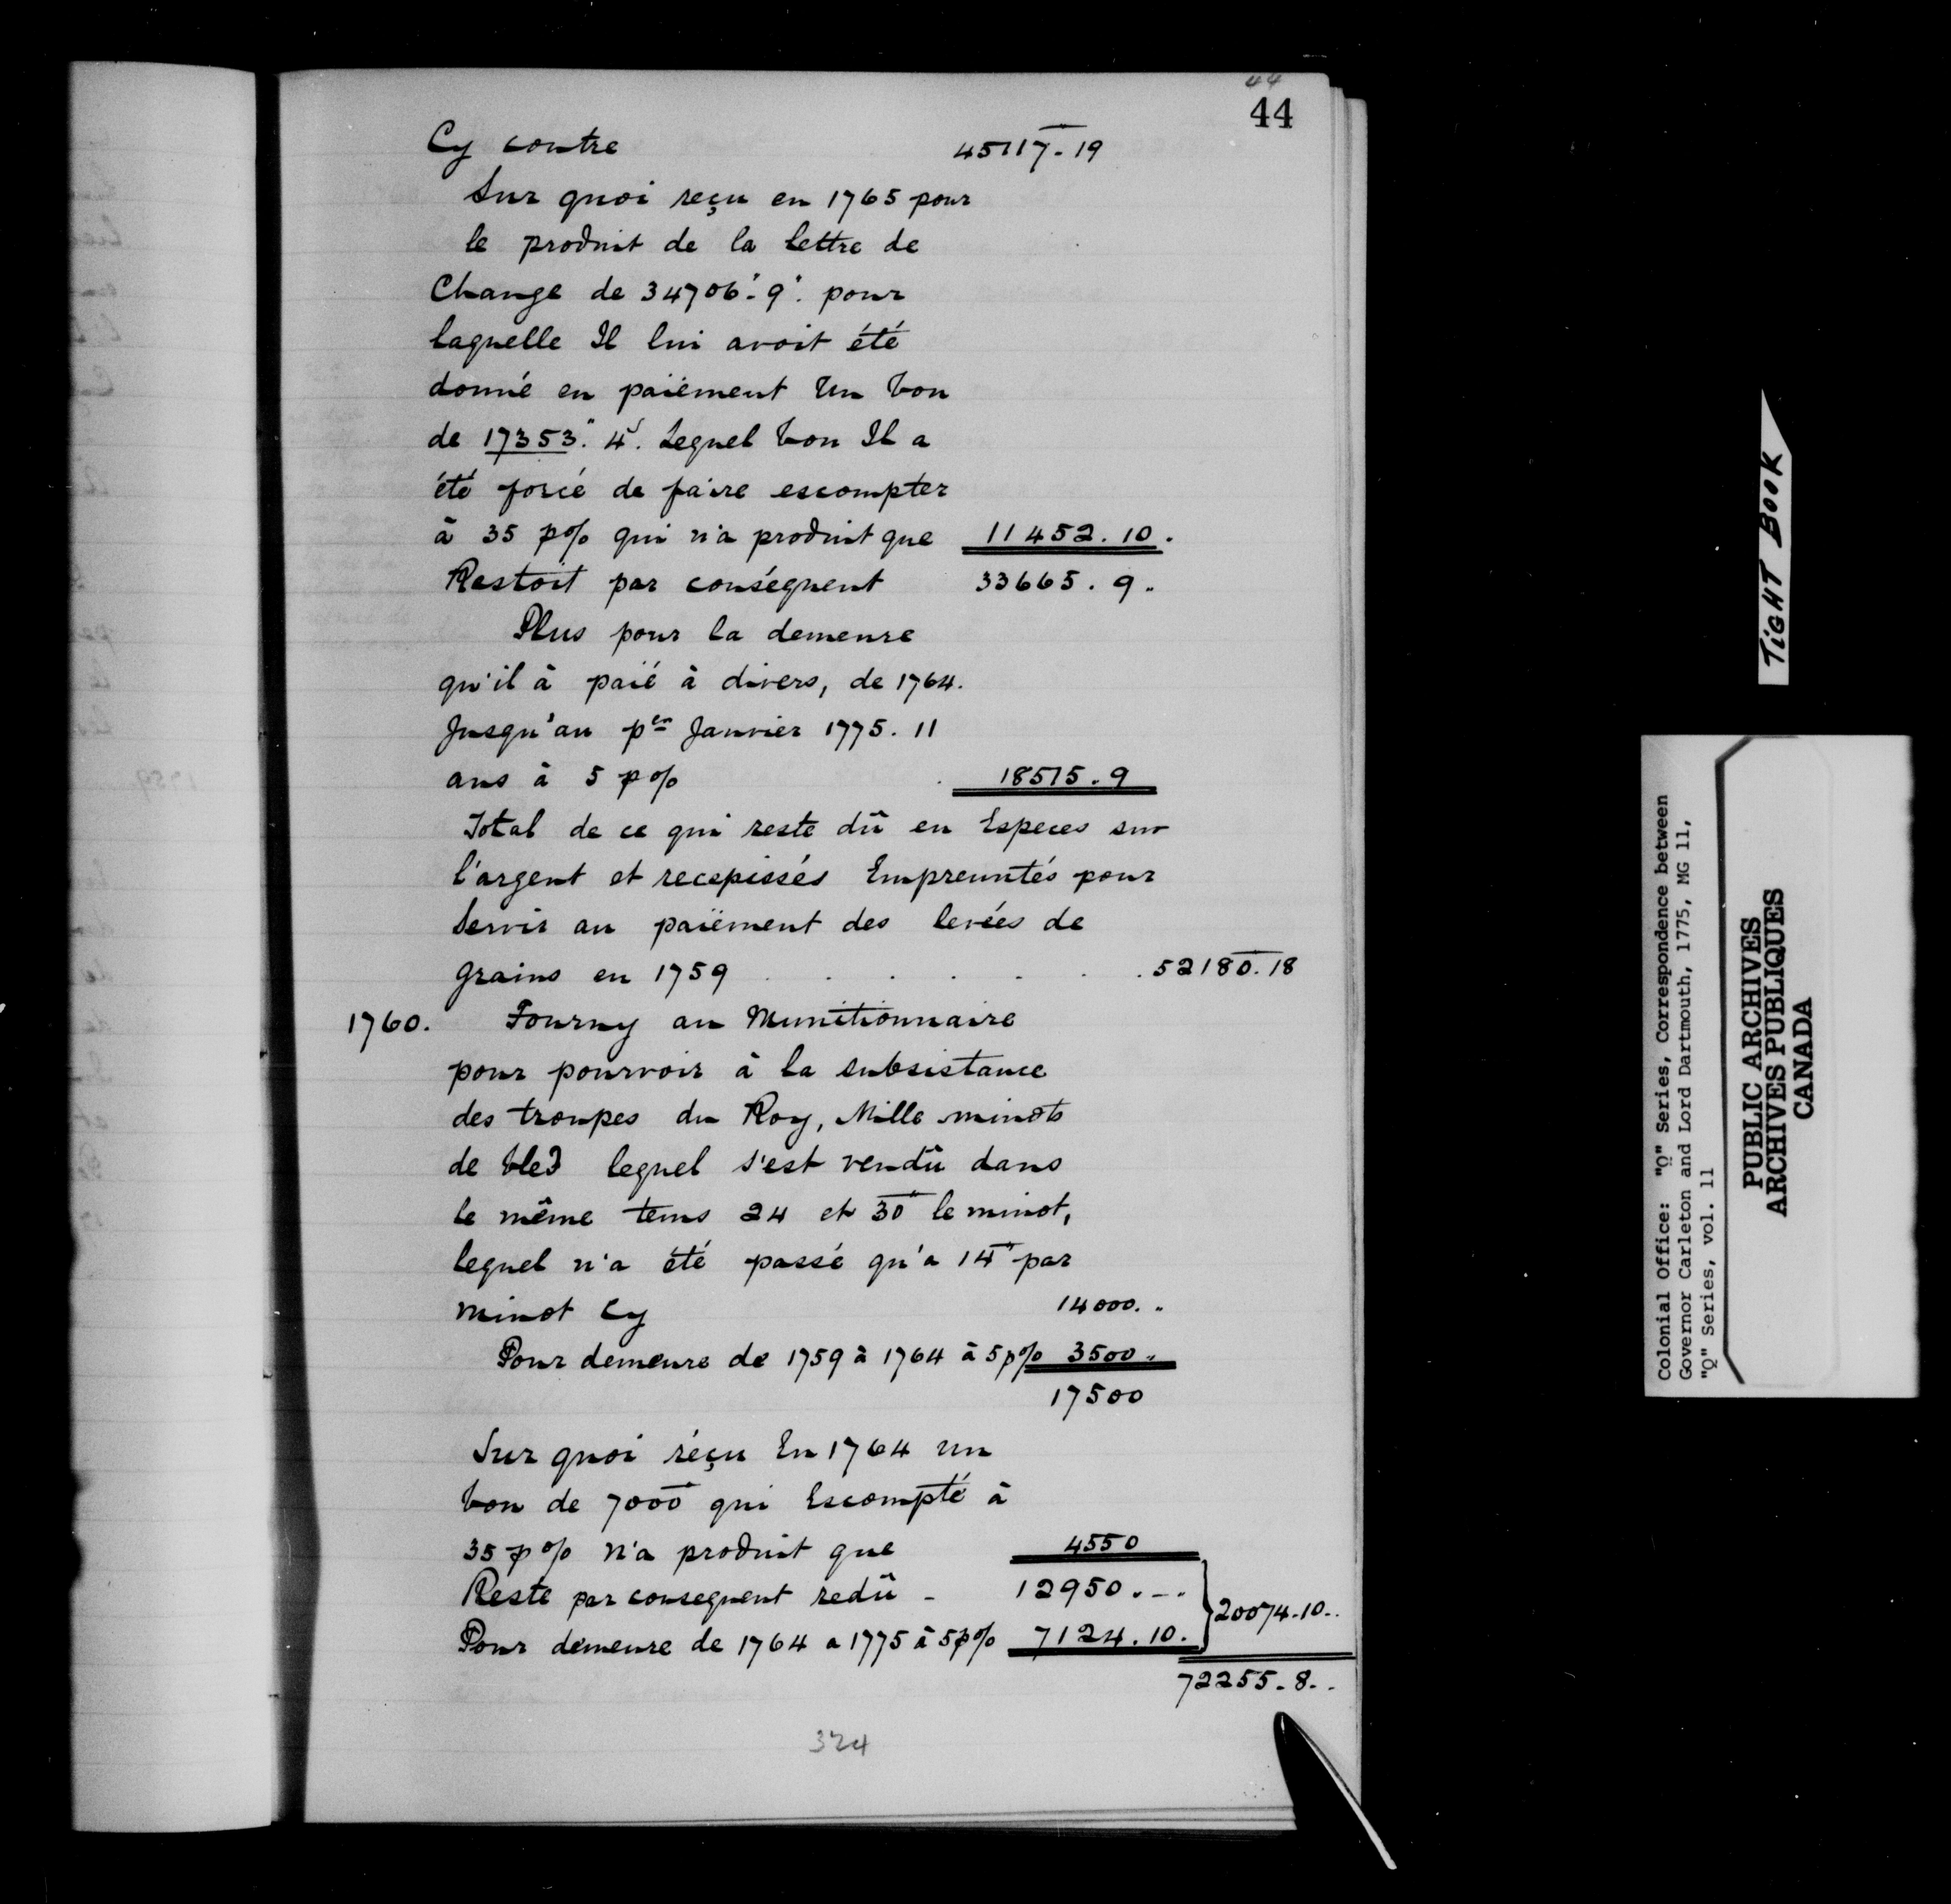 44
44
Cy contre 45117"-19
Sur quoi reçu en 1765 pour
le produit de la lettre de
Change de 34706"-9s. pour
laquelle Il lui avoit été
donné en païement Un bon
de 17353." 4s. Lequel bon Il a
été forcé de faire escompter
à 35 p% qui n'a produit que 11452.10.
Restoit par conséquent 33665.9..
Plus pour la demeure
qu'il à païé à divers, de 1764.
Jusqu'au per Janvier 1775. 11
ans à 5 p% 18515.9
Total de ce qui reste dû en Especes sur
l'argent et recepissés Empreuntés pour
Servir au païement des levées de
grains en 1759 . . . . . . 52180".18
1760. Fourny au Munitionnaire
pour pourvoir à la subsistance
des troupes du Roy, Mille minots
de bled lequel s'est vendû dans
le même tems 24 et 30" le minot,
lequel n'a été passé qu'a 14" par
minot Cy 14000...
Pour demeure de 1759 à 1764 à 5 p% 3500..
17500
Sur quoi réçu En 1764 un
bon de 7000" qui Escompté à
35 p% n'a produit que 4550
Reste par consequent redû - 12950.-. } 20074-10..
Pour demeure de 1764 a 1775 à 5 p% 7124.10.
72255-8..
324
TiGHT BOOK
Colonial Office: "Q" Series, Correspondence between
Governor Carleton and Lord Dartmouth, 1775, MG 11,
"Q" Series, vol. 11
PUBLIC ARCHIVES
ARCHIVES PUBLIQUES
CANADA